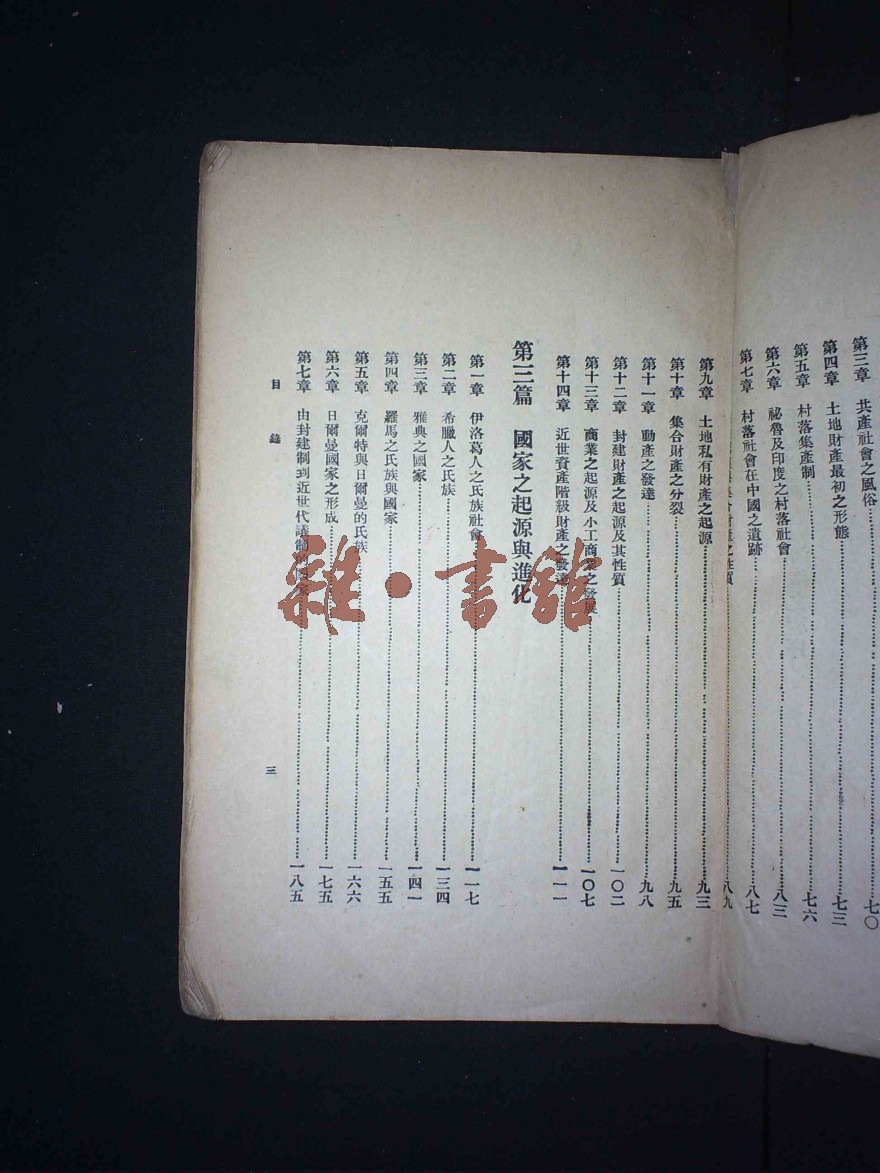 第三章 共產社會之風俗……七〇
第四章 土地財產最初之形態……七三
第五章 村落集產制……七六
第六章 祕魯及印度之村落社會……八三
第七章 村落社會在中國之遺跡……八七
集合財產之性質……八九
第九章 土地私有財產之起源……九三
第十章 集合財產之分裂……九五
第十一章 動產之發達……九八
第十二章 封建財產之起源及其性質……一〇二
第十三章 商業之起源及小工商業之發展……一〇七
第十四章 近世資產階級財產之發達……一一一
第三篇 國家之起源與進化
第一章 伊洛葛人之氏族社會……一一七
第二章 希臘人之氏族……一三四
第三章 雅典之國家……一四一
第四章 羅馬之氏族與國家……一五五
第五章 克爾特與日爾曼的氏族……一六六
第六章 日爾曼國家之形成……一七五
第七章 由封建制到近世代議制的國家……一八五
目錄
三
雜·書館